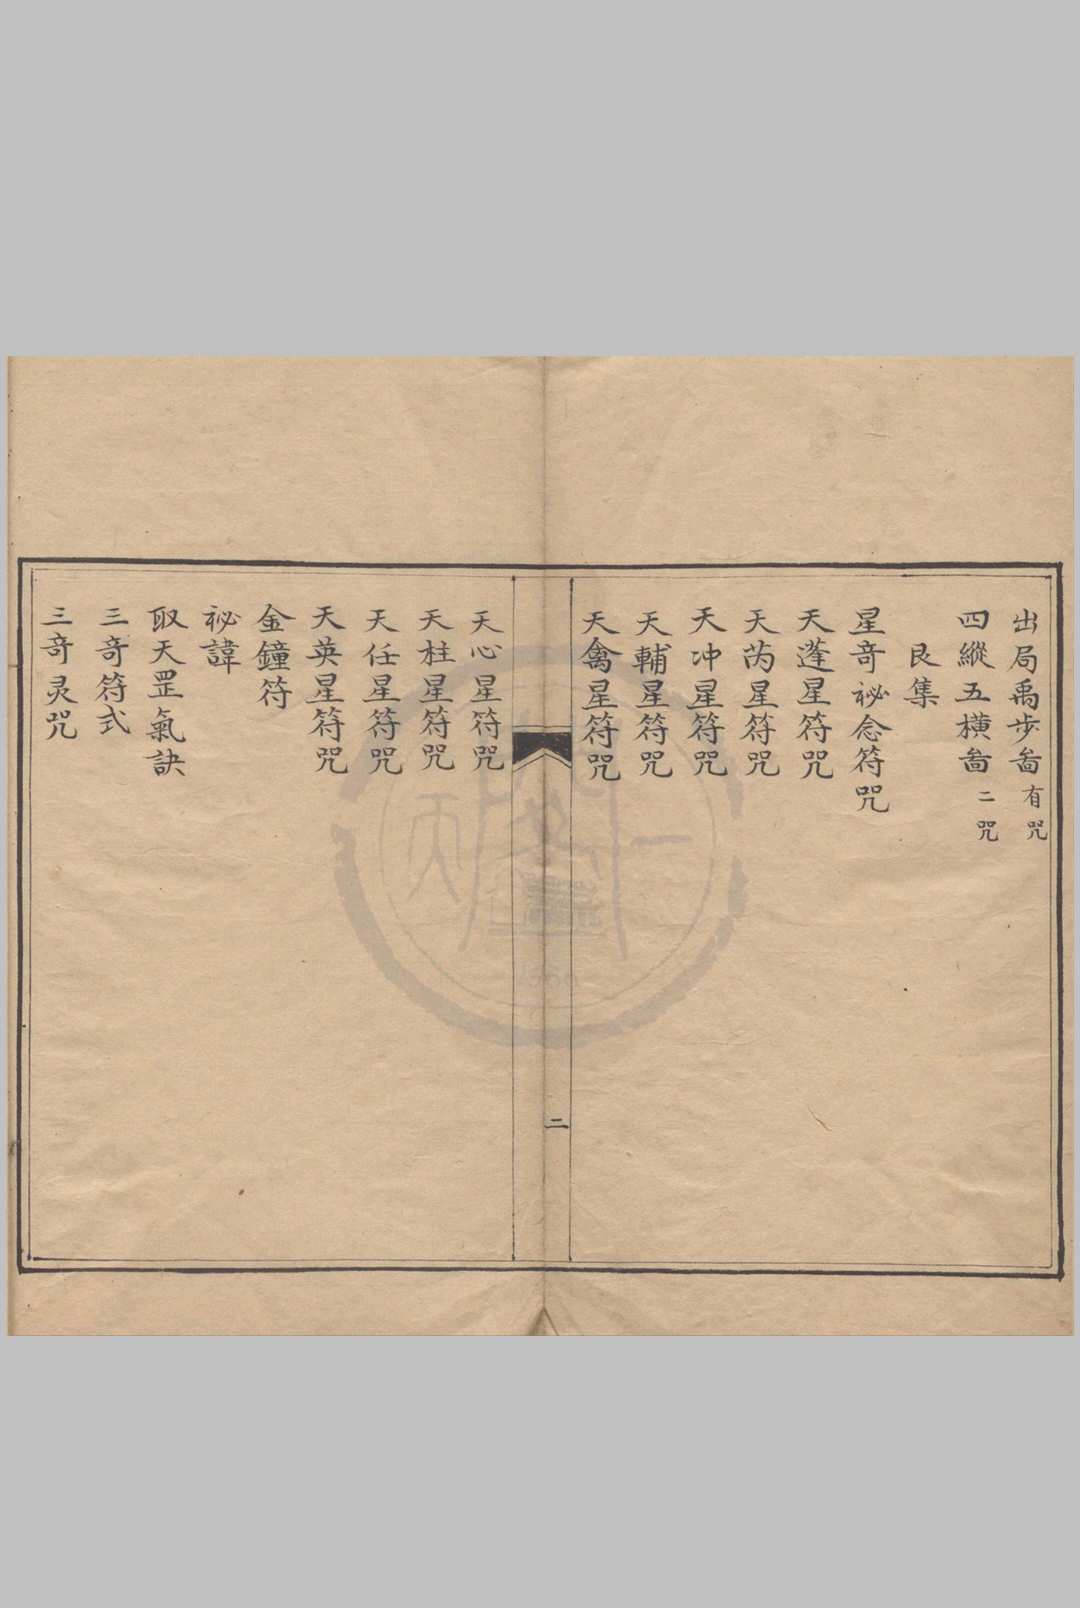 出局禹步啚有咒
四縱五橫啚二咒
艮集
星竒祕念符咒
天蓬星符咒
天芮星符咒
天冲星符咒
天輔星符咒
天禽星符咒
二
天心星符咒
天柱星符咒
天任星符咒
天英星符咒
金鐘符
祕諱
取天罡氣訣
三竒符式
三竒灵咒